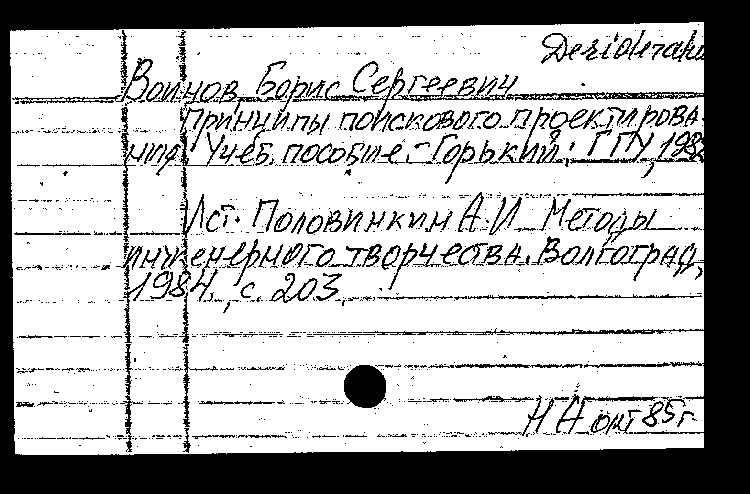 Desiderata
Воинов, Борис Сергеевич
Принципы поискового проектирова-
ния. Учеб. пособие. - Горький: ГПУ, 1982
Ист. Половинкин А.И. Методы
инженерного творчества. Волгоград,
1984, с. 203.
НА окт 85 г.